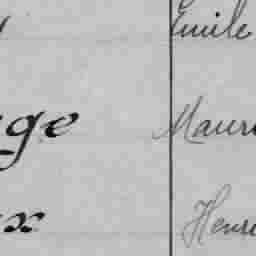 Emile
ge
Maur
x
Henr